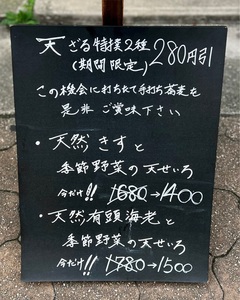 天ざる特撰2種 280円引
(期間限定)
この機会に打ちたて手打ち蕎麦を
是非ご賞味下さい
・天然きすと
季節野菜の天せいろ
今だけ!! 1680→1400
・天然有頭海老と
季節野菜の天せいろ
今だけ!! 1780→1500